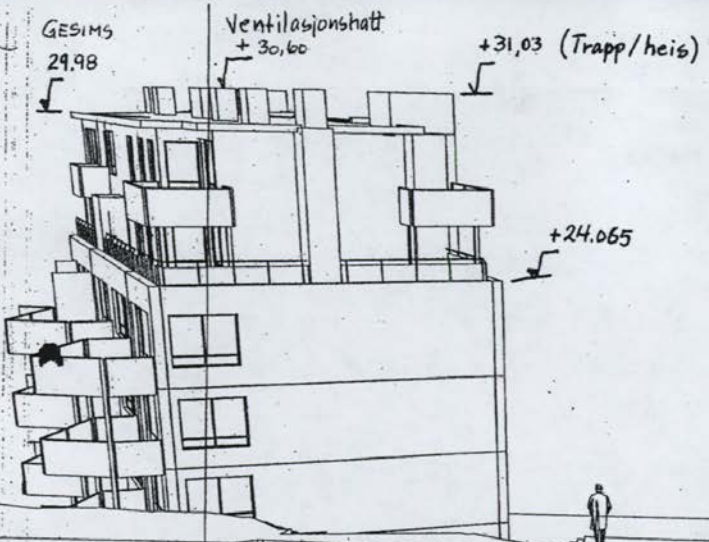 GESIMS
29.98
Ventilasjonshatt
+ 30,60
+31,03 (Trapp/heis)
+24.065